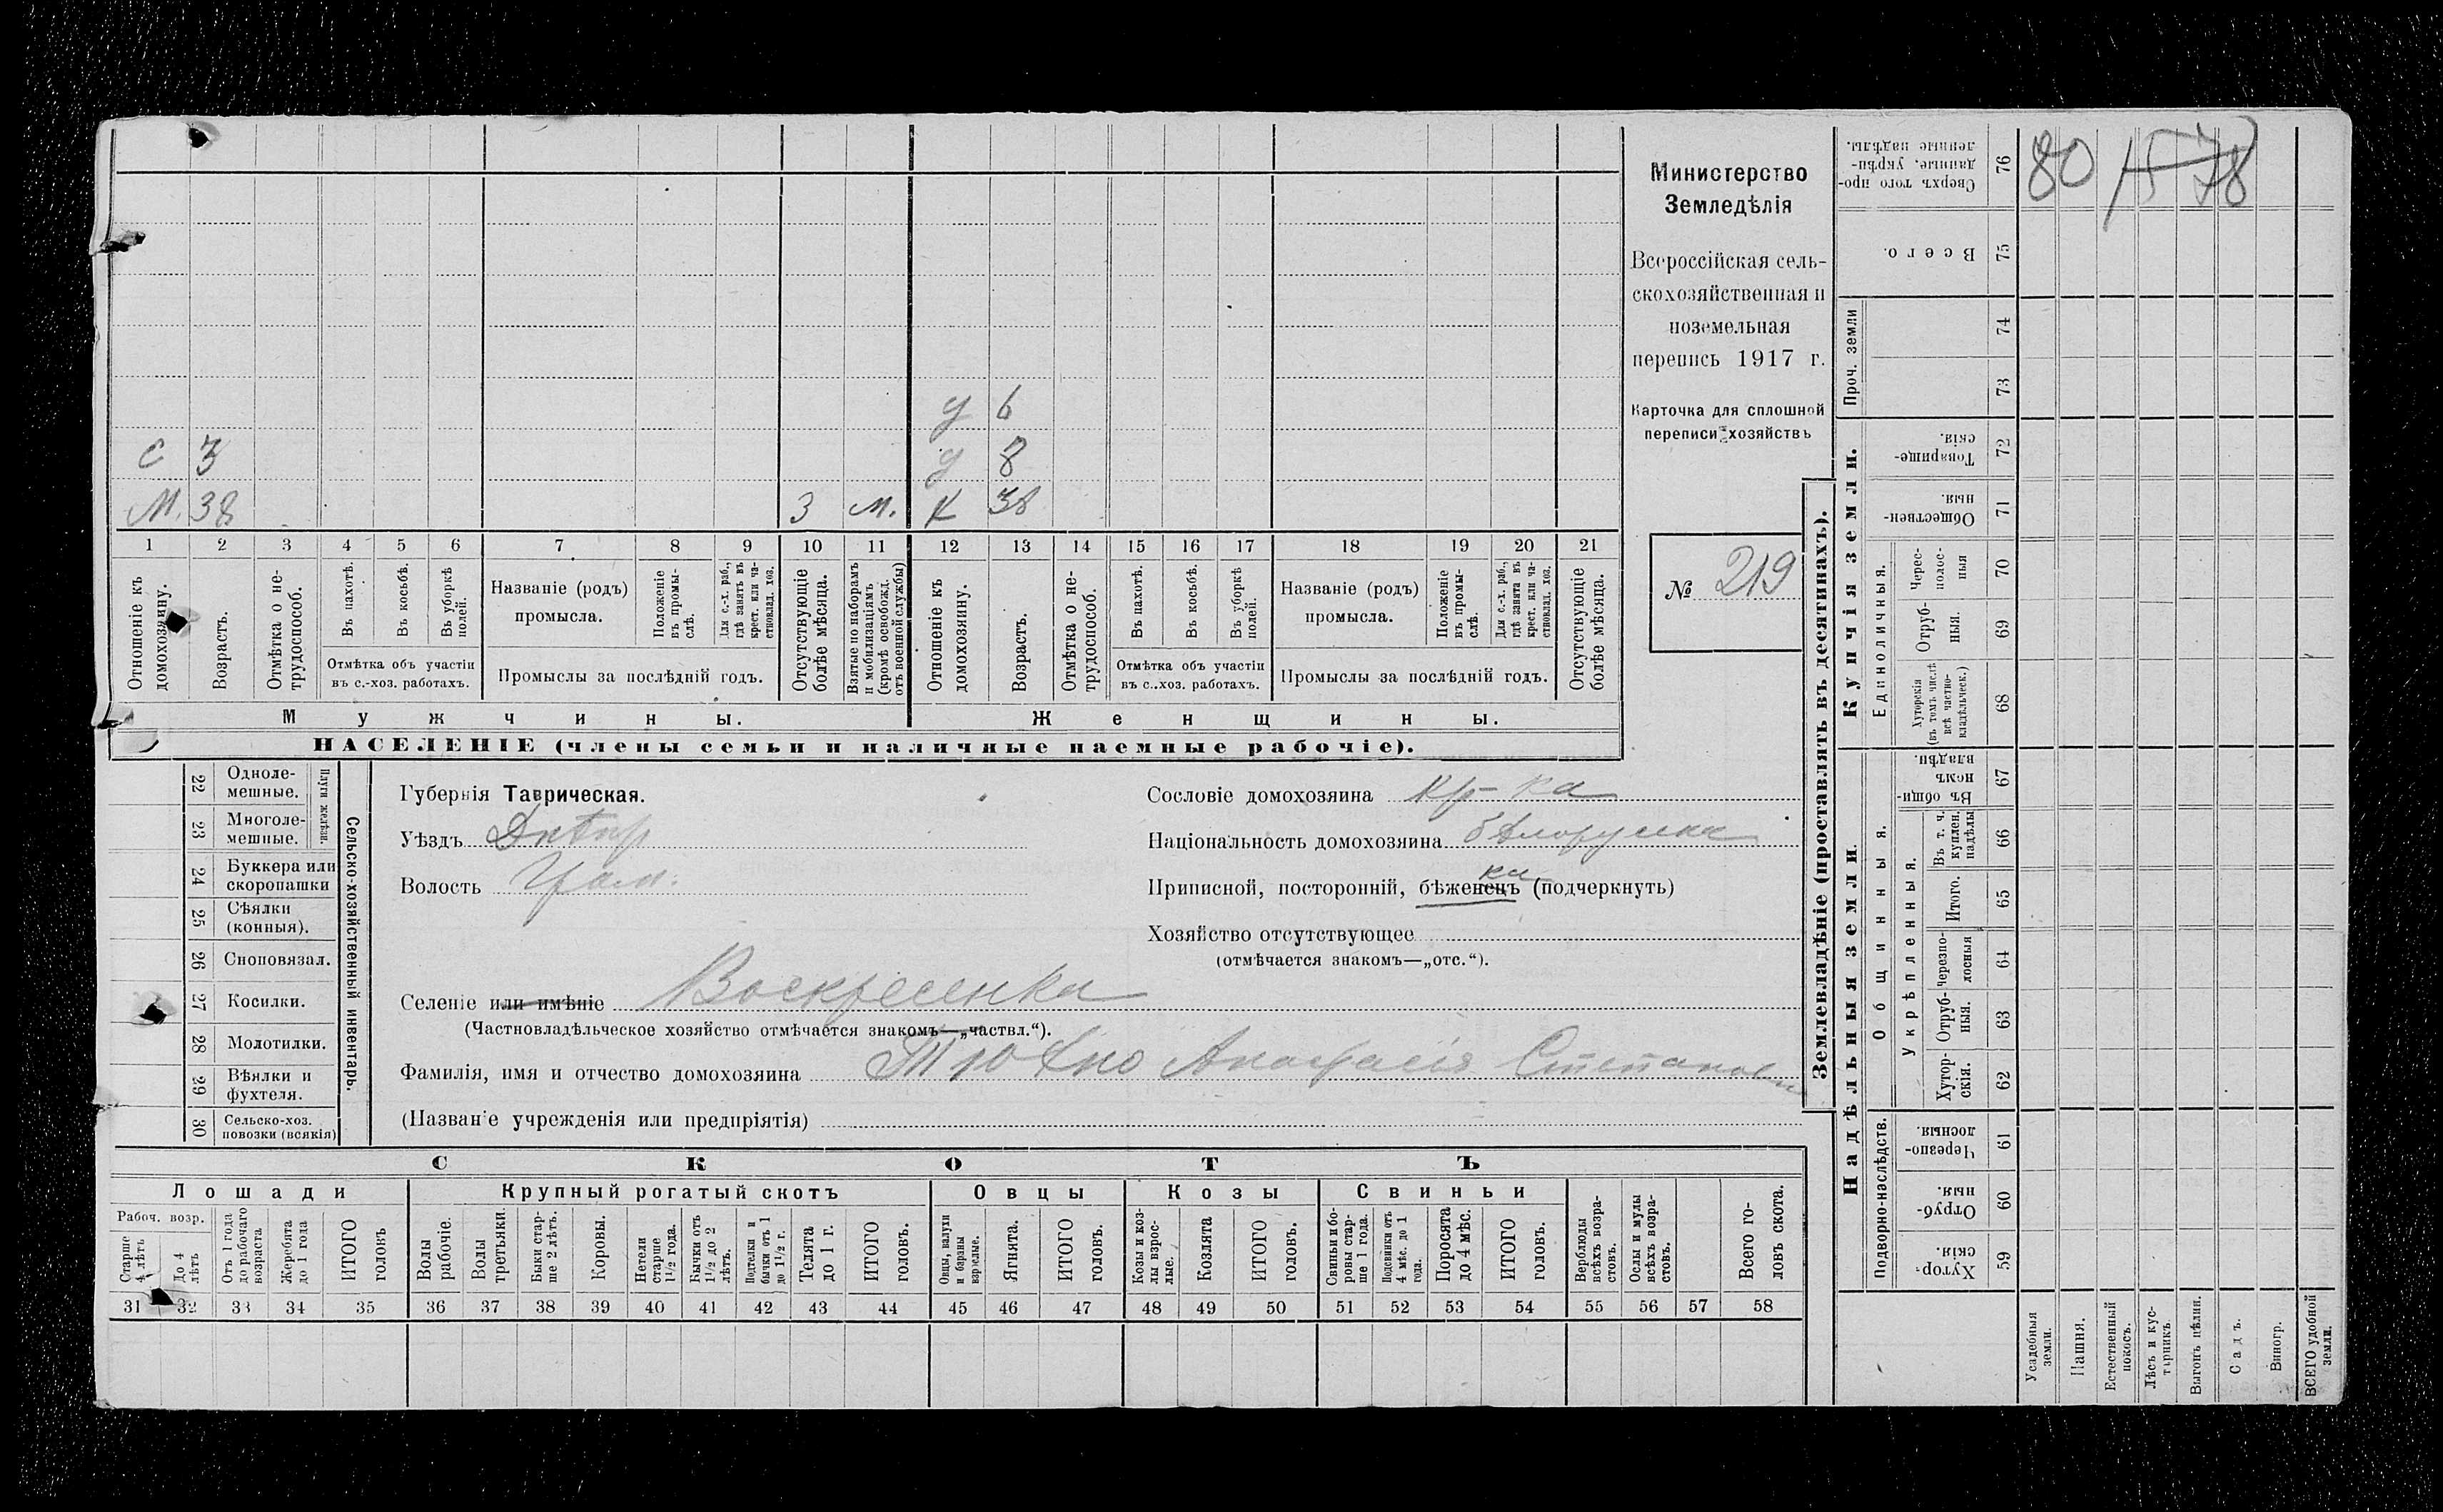 80 78
с 3
у 6
у 8
М. 38 3 м. К 38
1 2 3 4 5 6 7 8 9 10 11 12 13 14 15 16 17 18 19 20 21
Отношеніе къ домохозяину.
Возрастъ.
Отмѣтка о не-трудоспособ.
Въ пахотѣ.
Въ косьбѣ.
Въ уборкѣ полей.
Отмѣтка объ участіи
въ с.-хоз. работахъ.
Названіе (родъ)
промысла.
Положеніе въ промы-слѣ.
Для с.-х. раб., гдѣ занятъ въ крест. или ча-стновлад. хоз.
Промыслы за послѣдній годъ.
Отсутствующіе болѣе мѣсяца.
Взятые по наборамъ и мобилизаціямъ (кромѣ освобожд. отъ военной службы)
Отношеніе къ домохозяину.
Возрастъ.
Отмѣтка о не-трудоспособ.
Въ пахотѣ.
Въ косьбѣ.
Въ уборкѣ полей.
Отмѣтка объ участіи
въ с.-хоз. работахъ.
Названіе (родъ)
промысла.
Положеніе въ промы-слѣ.
Для с.-х. раб., гдѣ занята въ крест. или ча-стновлад. хоз.
Промыслы за послѣдній годъ.
Отсутствующіе болѣе мѣсяца.
Мужчины. Женщины.
НАСЕЛЕНІЕ (члены семьи и наличные наемные рабочіе).
Министерство
Земледѣлія
Всероссійская сель-
скохозяйственная и
поземельная
перепись 1917 г.
Карточка для сплошной
переписи хозяйствъ
№ 219
22 Одноле-мешные.
23 Многоле-мешные.
Плуги желѣзн.
24 Буккера или скоропашки
25 Сѣялки (конныя).
26 Сноповязал.
27 Косилки.
28 Молотилки.
29 Вѣялки и фухтеля.
30 Сельско-хоз. повозки (всякія)
Сельско-хозяйственный инвентарь.
Губернія Таврическая.
Уѣздъ Днѣпр
Волость
Селеніе или имѣніе Воскресенка
(Частновладѣльческое хозяйство отмѣчается знакомъ—„частвл.“).
Фамилія, имя и отчество домохозяина Анастасія Степановн
(Названіе учрежденія или предпріятія)
Сословіе домохозяина кр-ка
Національность домохозяина бѣлоруска
ка
Приписной, посторонній, бѣженецъ (подчеркнуть)
Хозяйство отсутствующее
(отмѣчается знакомъ—„отс.“).
СКОТЪ
Лошади Крупный рогатый скотъ Овцы Козы Свиньи
Рабоч. возр.
Старше 4 лѣтъ
До 4 лѣтъ
Отъ 1 года до рабочаго возраста
Жеребята до 1 года
ИТОГО головъ
Волы рабочіе.
Волы третьяки.
Быки стар-ше 2 лѣтъ.
Коровы.
Нетели старше 1½ года.
Бычки отъ 1½ до 2 лѣтъ.
Подтелки и бычки отъ 1 до 1½ г.
Телята до 1 г.
ИТОГО головъ.
Овцы, валухи и бараны взрослые.
Ягнята.
ИТОГО головъ.
Козы и коз-лы взрос-лые.
Козлята
ИТОГО головъ.
Свиньи и бо-ровы стар-ше 1 года.
Подсвинки отъ 4 мѣс. до 1 года.
Поросята до 4 мѣс.
ИТОГО головъ.
Верблюды всѣхъ возра-стовъ.
Ослы и мулы всѣхъ возра-стовъ.
Всего го-ловъ скота.
31 32 33 34 35 36 37 38 39 40 41 42 43 44 45 46 47 48 49 50 51 52 53 54 55 56 57 58
Землевладѣніе (проставлять въ десятинахъ).
Сверхъ того про-данные, укрѣп-ленные надѣлы. 76
Всего. 75
Проч. земли 74 73
Купчія земли.
Товарище-скія. 72
Обществен-ныя. 71
Единоличныя.
Черес-полос-ныя 70
Отруб-ныя. 69
Хуторскія (въ томъ числѣ всѣ частно-владѣльческ.) 68
Надѣльныя земли
Общинныя.
Въ общи-номъ владѣн. 67
Укрѣпленныя.
Въ т. ч. куплен. надѣлы 66
Итого. 65
Черезпо-лосныя 64
Отруб-ныя. 63
Хутор-скія. 62
Подворно-наслѣдств.
Черезпо-лосныя. 61
Отруб-ныя. 60
Хутор-скія. 59
Усадебныя земли.
Пашня.
Естественный покосъ.
Лѣсъ и кус-тарникъ
Выгонъ цѣлина.
Садъ.
Виногр.
ВСЕГО удобной земли.